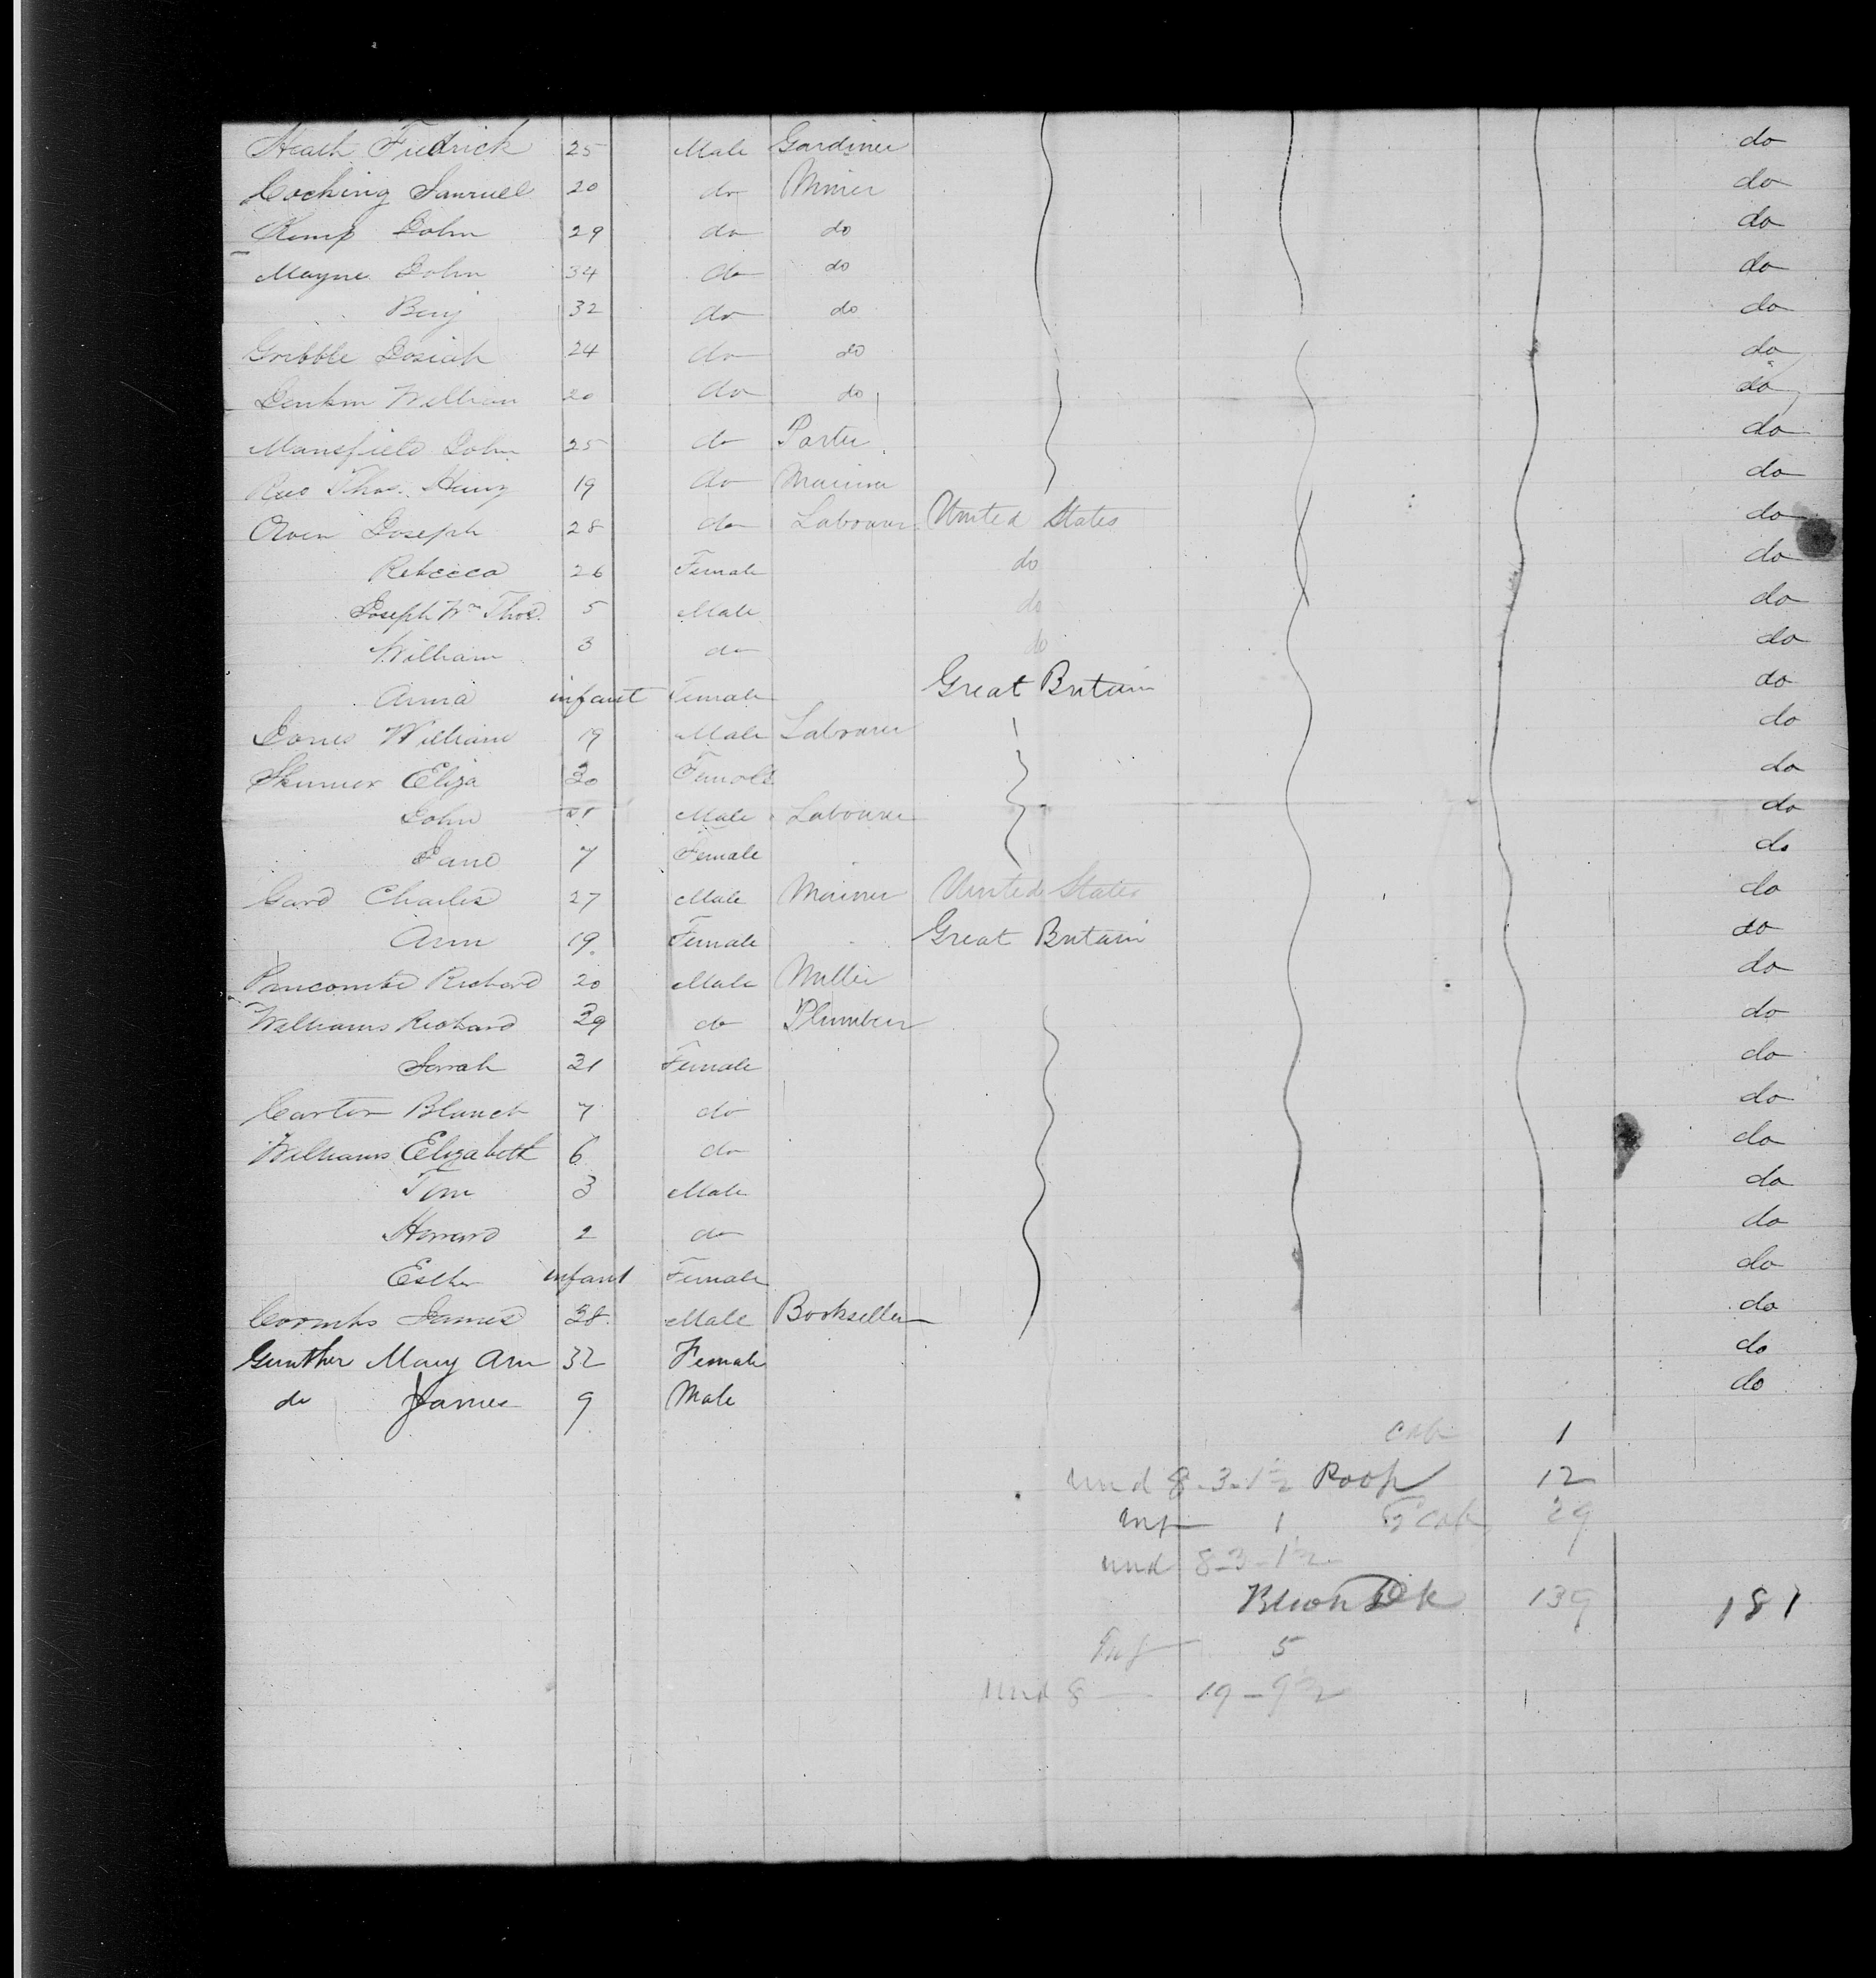 Heath Fredrick 25 Male Gardiner do
Cocking Samuel 20 do Miner do
Kemp John 29 do do do
Mayne John 34 do do do
Benj 32 do do do
Gribble Josiah 24 do do do
Jenkin William 20 do do do
Mansfield John 25 do Porter do
Thos. Henry 19 do do
Owen Joseph 28 do Labourer United States do
Rebecca 26 Female do do
Joseph Wm Thos. 5 Male do do
William 3 do do do
Anna infant Female Great Britain do
Jones William 19 Male Labourer do
Skinner Eliza 30 Female do
John Male Labourer do
Jane 7 Female do
Gard Charles 27 Male United States do
Ann 19 Female Great Britain do
Richard 20 Male Miller do
Williams Richard 29 do Plumber do
Sarah 31 Female do
Carter Blanch 7 do do
Williams Elizabeth 6 do do
Tom 3 Male do
Howard 2 do do
Esther infant Female do
Coombs James 28 Male Bookseller do
Gunther Mary Ann 32 Female do
do James 9 Male do
cab 1
und 8-3-1½ Poop 12
Inf 1 2 cab 29
und 8-3-1½
Btween Dk 139 181
Inf 5
und 8 — 19-9½